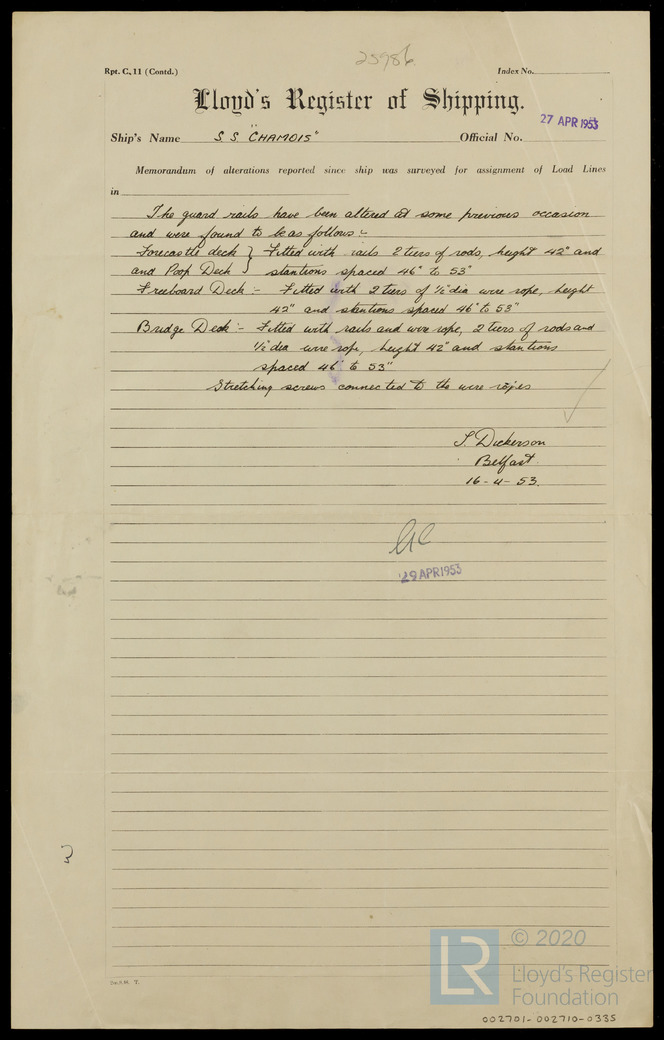 25986
Rpt. C.11 (Contd.) Index No.
Lloyd's Register of Shipping.
27 APR 1953
Ship's Name S.S. "CHAMOIS" Official No.
Memorandum of alterations reported since ship was surveyed for assignment of Load Lines
in
The guard rails have been altered at some previous occasion
and were found to be as follows :-
Forecastle deck } Fitted with rails 2 tiers of rods, height 42" and
and Poop Deck } stantions spaced 46" to 53"
Freeboard Deck :- Fitted with 2 tiers of ½" dia wire rope, height
42" and stantions spaced 46" to 53"
Bridge Deck :- Fitted with rails and wire rope, 2 tiers of rods and
½" dia wire rope, height 42" and stantions
spaced 46" to 53"
Stretching screws connected to the wire ropes
Dickerson
Belfast
16-4-53.
29 APR 1953
LR
© 2020
Lloyd's Register
Foundation
002701-002710-0335